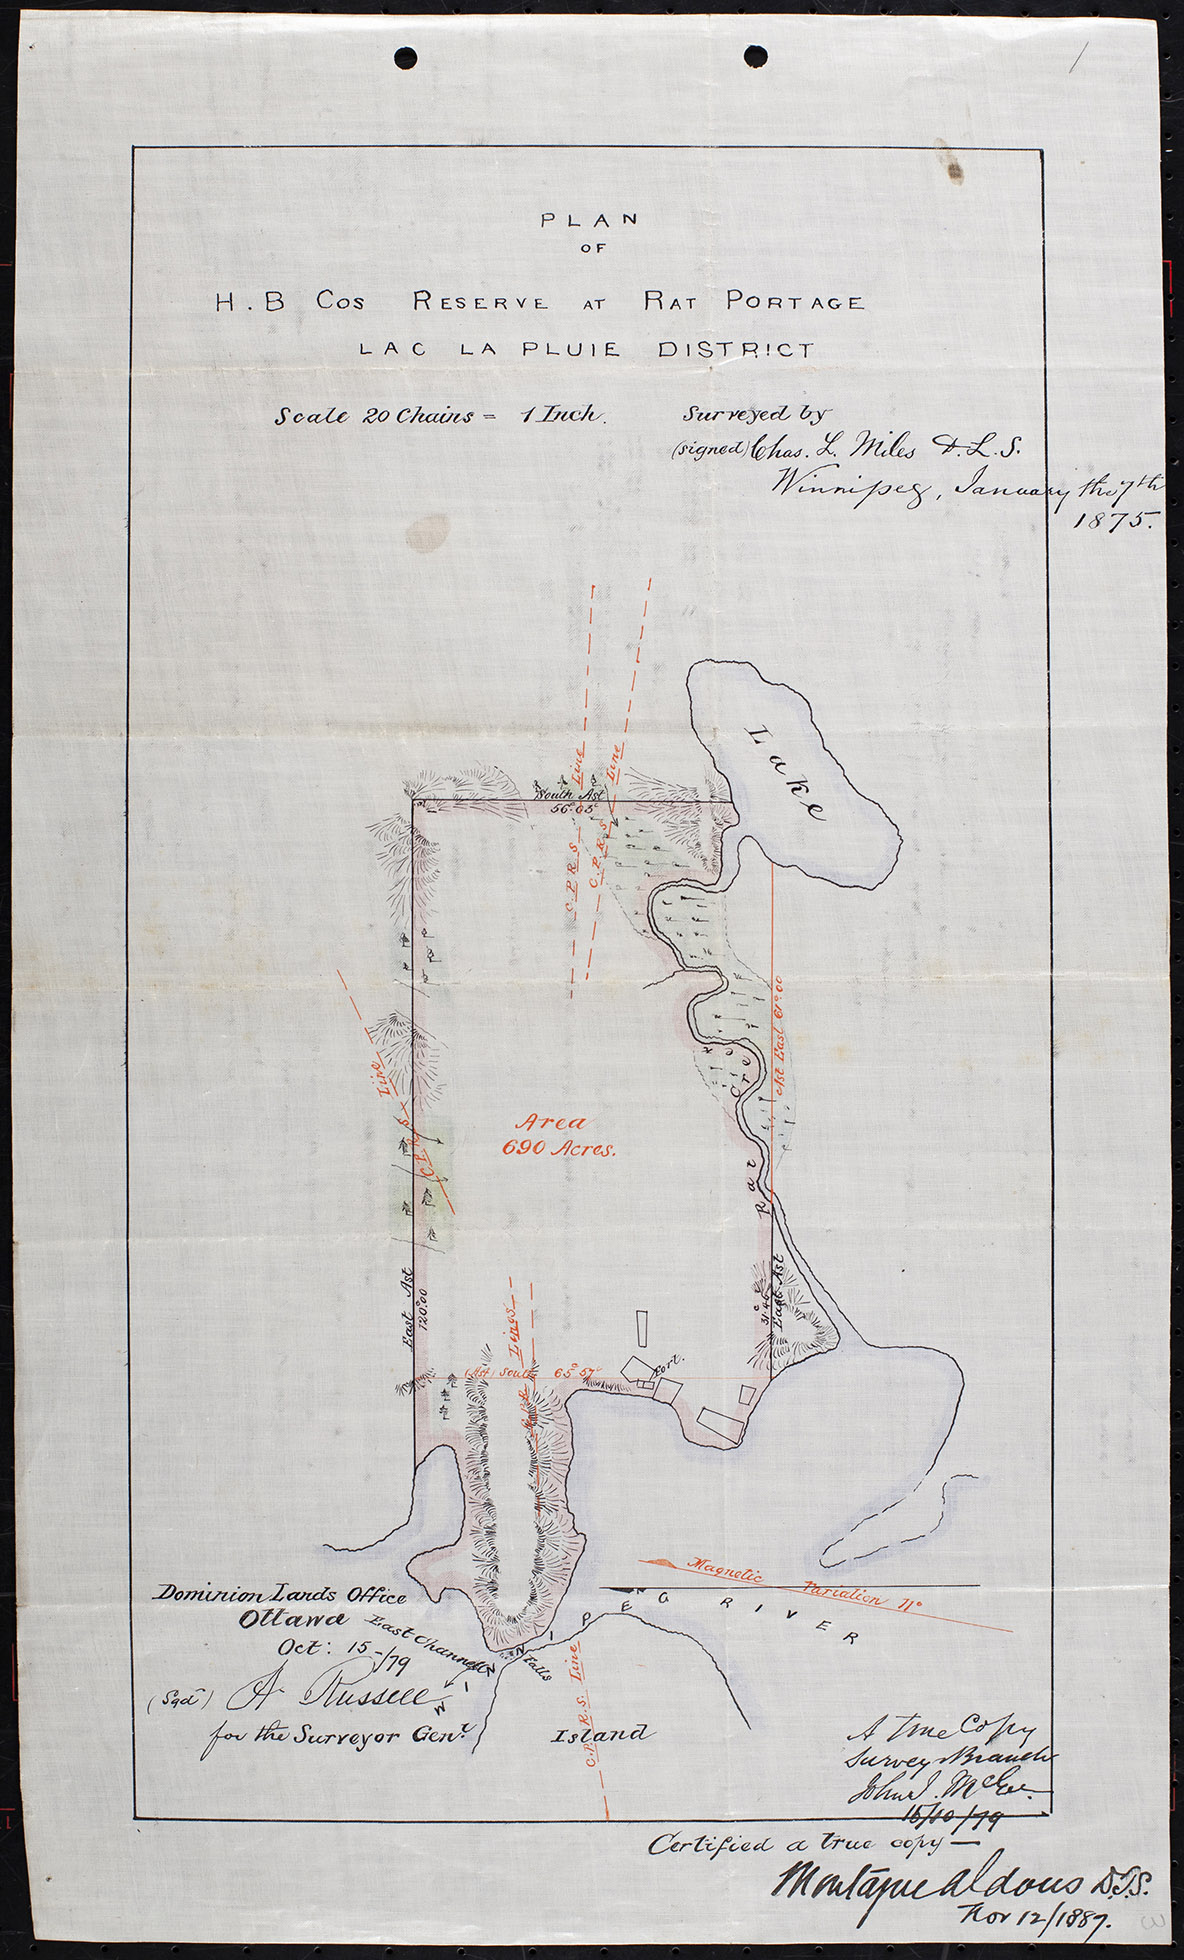 1
PLAN
OF
H. B Cos RESERVE AT RAT PORTAGE
LAC LA PLUIE DISTRICT
Scale 20 Chains = 1 Inch.
Surveyed by
(signed) Chas. L. Miles D.L.S.
Winnipeg, January the 7th
1875.
Lake
Line
Line
South Ast
56°05c
C.P.R.S.
C.P.R.S.
Ast East 61°00
Line
C.P.R.S
Area
690 Acres.
Rat Cre
East Ast
120°00
31°46c
East Ast
Lines
(Ast) South 65°57c
Fort.
Magnetic Variation 11°
WINNIPEG RIVER
Dominion Lands Office
Ottawa
Oct: 15-/79
(Sgd) A. Russell
for the Surveyor Genl.
East Channel
Falls
Island
C.P.R.S. Line
A True Copy
Survey Branch
John J. McGee
15/10/79
Certified a true copy —
Montague Aldous D.T.S.
Nov 12/1887.